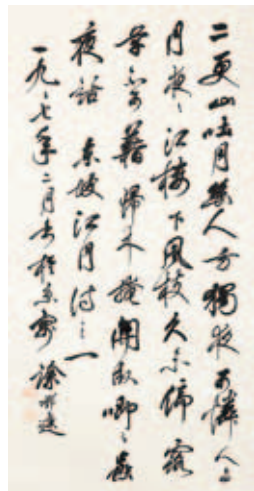 二更山吐月幽人方獨夜可憐人与
月夜々江樓下風枝久未停露
草不可藉歸來掩關臥唧々蟲
夜話 東坡江月詩之一
一九八七年二月書於京寓 徐邦達